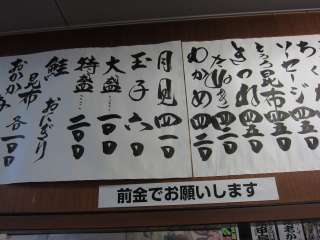 ち
ソーセージ 四五〇
とろろ昆布 四五〇
きつね 四五〇
たぬき 四二〇
わかめ 四二〇
月見 四一〇
玉子 六〇
大盛 一〇〇
特盛 二〇〇
鮭 おにぎり
昆布 各一〇〇
おかか
前金でお願いします